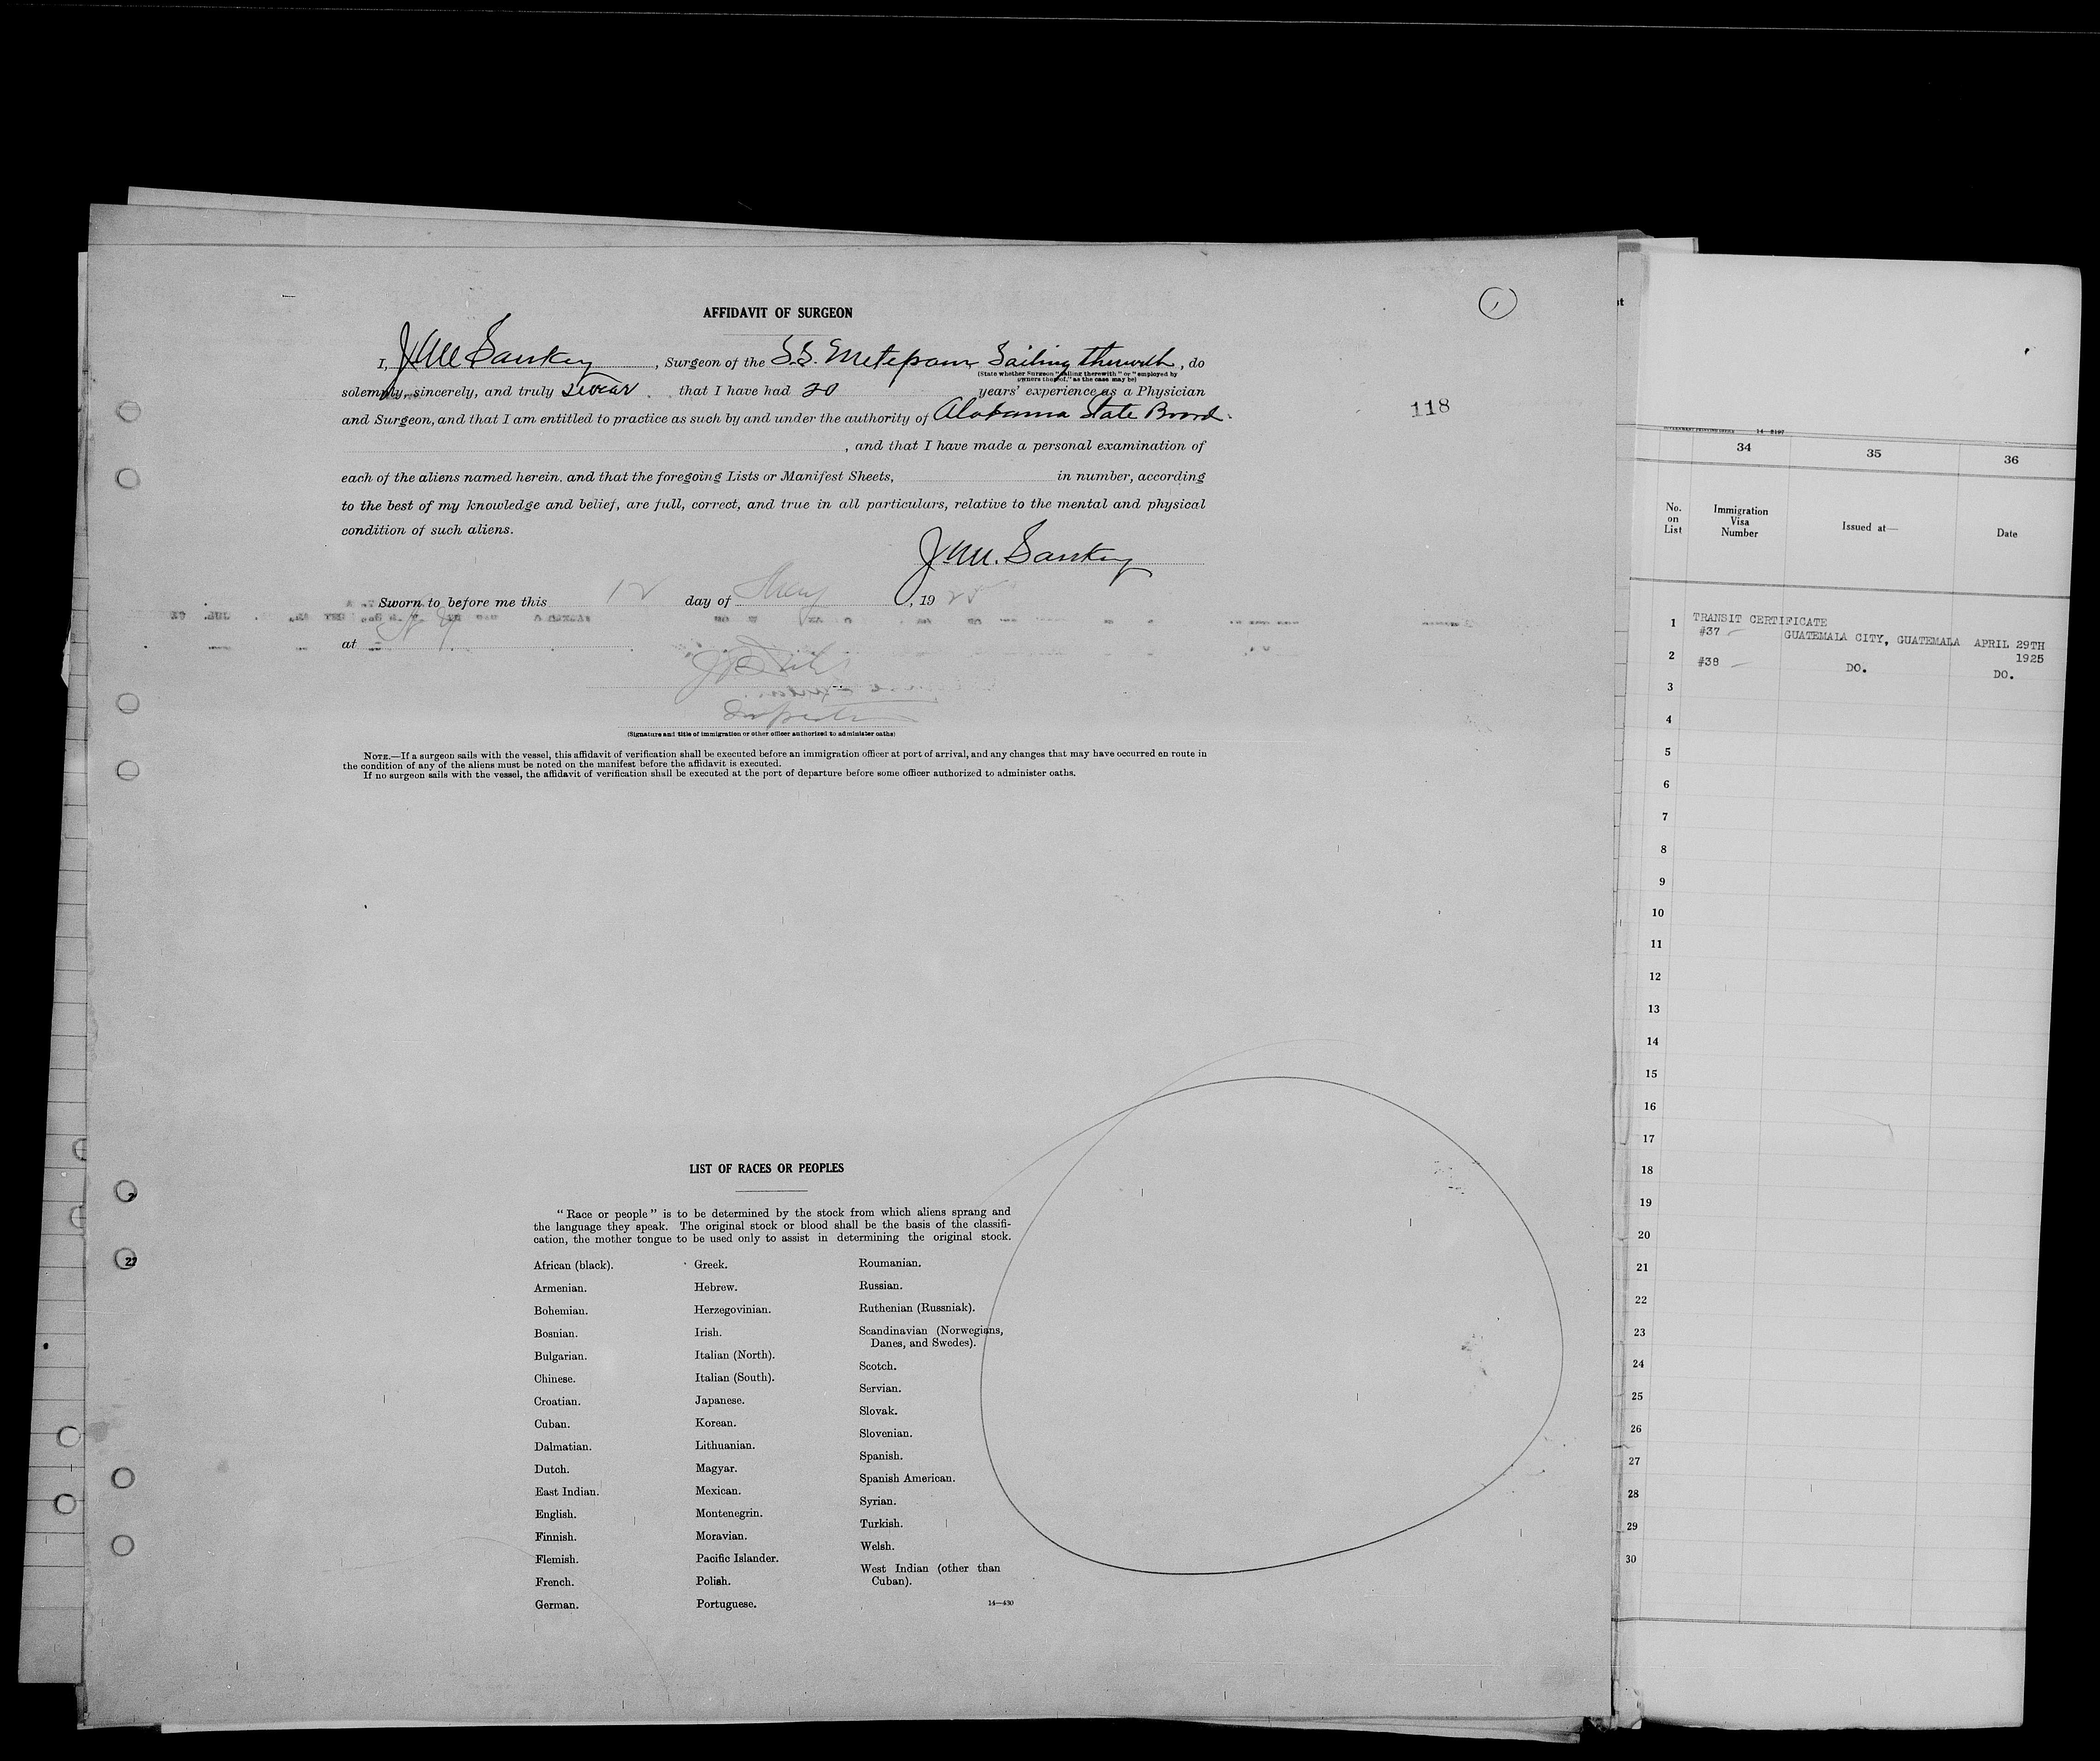 AFFIDAVIT OF SURGEON
I, J M Sankey, Surgeon of the S.S. Metapan Sailing therewith, do
(State whether Surgeon "sailing therewith" or "employed by
owners thereof," as the case may be)
solemnly, sincerely, and truly swear that I have had 20 years' experience as a Physician
and Surgeon, and that I am entitled to practice as such by and under the authority of Alabama State Board
, and that I have made a personal examination of
each of the aliens named herein, and that the foregoing Lists or Manifest Sheets, in number, according
to the best of my knowledge and belief, are full, correct, and true in all particulars, relative to the mental and physical
condition of such aliens.
J M. Sankey
Sworn to before me this 12 day of May, 1925
at N Y
Inspector
(Signature and title of immigration or other officer authorized to administer oaths)
NOTE.—If a surgeon sails with the vessel, this affidavit of verification shall be executed before an immigration officer at port of arrival, and any changes that may have occurred en route in
the condition of any of the aliens must be noted on the manifest before the affidavit is executed.
If no surgeon sails with the vessel, the affidavit of verification shall be executed at the port of departure before some officer authorized to administer oaths.
118
LIST OF RACES OR PEOPLES
"Race or people" is to be determined by the stock from which aliens sprang and
the language they speak. The original stock or blood shall be the basis of the classifi-
cation, the mother tongue to be used only to assist in determining the original stock.
African (black).
Armenian.
Bohemian.
Bosnian.
Bulgarian.
Chinese.
Croatian.
Cuban.
Dalmatian.
Dutch.
East Indian.
English.
Finnish.
Flemish.
French.
German.
Greek.
Hebrew.
Herzegovinian.
Irish.
Italian (North).
Italian (South).
Japanese.
Korean.
Lithuanian.
Magyar.
Mexican.
Montenegrin.
Moravian.
Pacific Islander.
Polish.
Portuguese.
Roumanian.
Russian.
Ruthenian (Russniak).
Scandinavian (Norwegians,
Danes, and Swedes).
Scotch.
Servian.
Slovak.
Slovenian.
Spanish.
Spanish American.
Syrian.
Turkish.
Welsh.
West Indian (other than
Cuban).
14—430
34 35 36
No. on List
Immigration Visa Number
Issued at—
Date
1 TRANSIT CERTIFICATE
#37 GUATEMALA CITY, GUATEMALA APRIL 29TH
1925
2 #38 DO. DO.
3
4
5
6
7
8
9
10
11
12
13
14
15
16
17
18
19
20
21
22
23
24
25
26
27
28
29
30